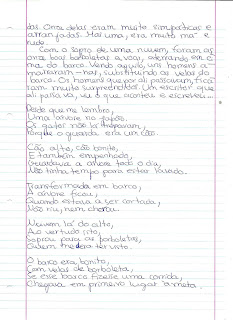 das. Onze delas eram muito simpáticas e
arranjadas. Mas uma, era muito má e
rude.
Com o sopro de uma nuvem, foram as
onze borboletas a voar, aterrando em ci
ma do barco. Vendo aquilo, uns homens a
marraram-nas, substituindo as velas do
barco. Os homens que por ali passavam, fica
ram muito surpreendidos. Um escritor que
ali passava, viu o que acontecia e escreveu...
Desde que me lembro,
Uma árvore no Japão
Os gatos não a trepavam,
Porque o guarda era um cão.
Cão alto, cão bonito,
E também empenhado,
Guardava a árvore todo o dia,
Não tinha tempo para estar
Transformada em barco,
A árvore ficou,
Quando estava a ser cortada,
Não riu, nem chorou.
Nuvem lá do alto,
Ao ver tudo isto,
Soprou para as borboletas,
Quem me dera ter visto.
O barco era bonito,
Com velas de borboleta,
Se esse barco fizesse uma corrida,
Chegava em primeiro lugar à meta.